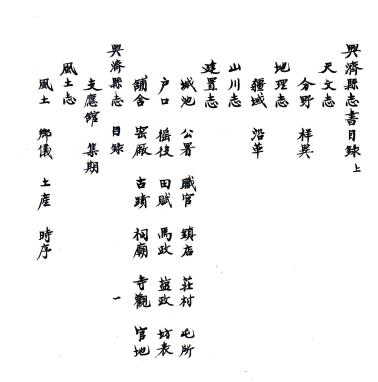 興濟縣志書目錄上
天文志
分野 祥異
地理志
疆域 沿革
山川志
建置志
城池 公署 職官 鎮店 莊村 屯所
戶口 徭役 田賦 馬政 鹽政 坊表
舖舍 窰廠 古蹟 祠廟 寺觀 官地
興濟縣志 目錄 一
支應館 集期
風土志
風土 鄉儀 土產 時序